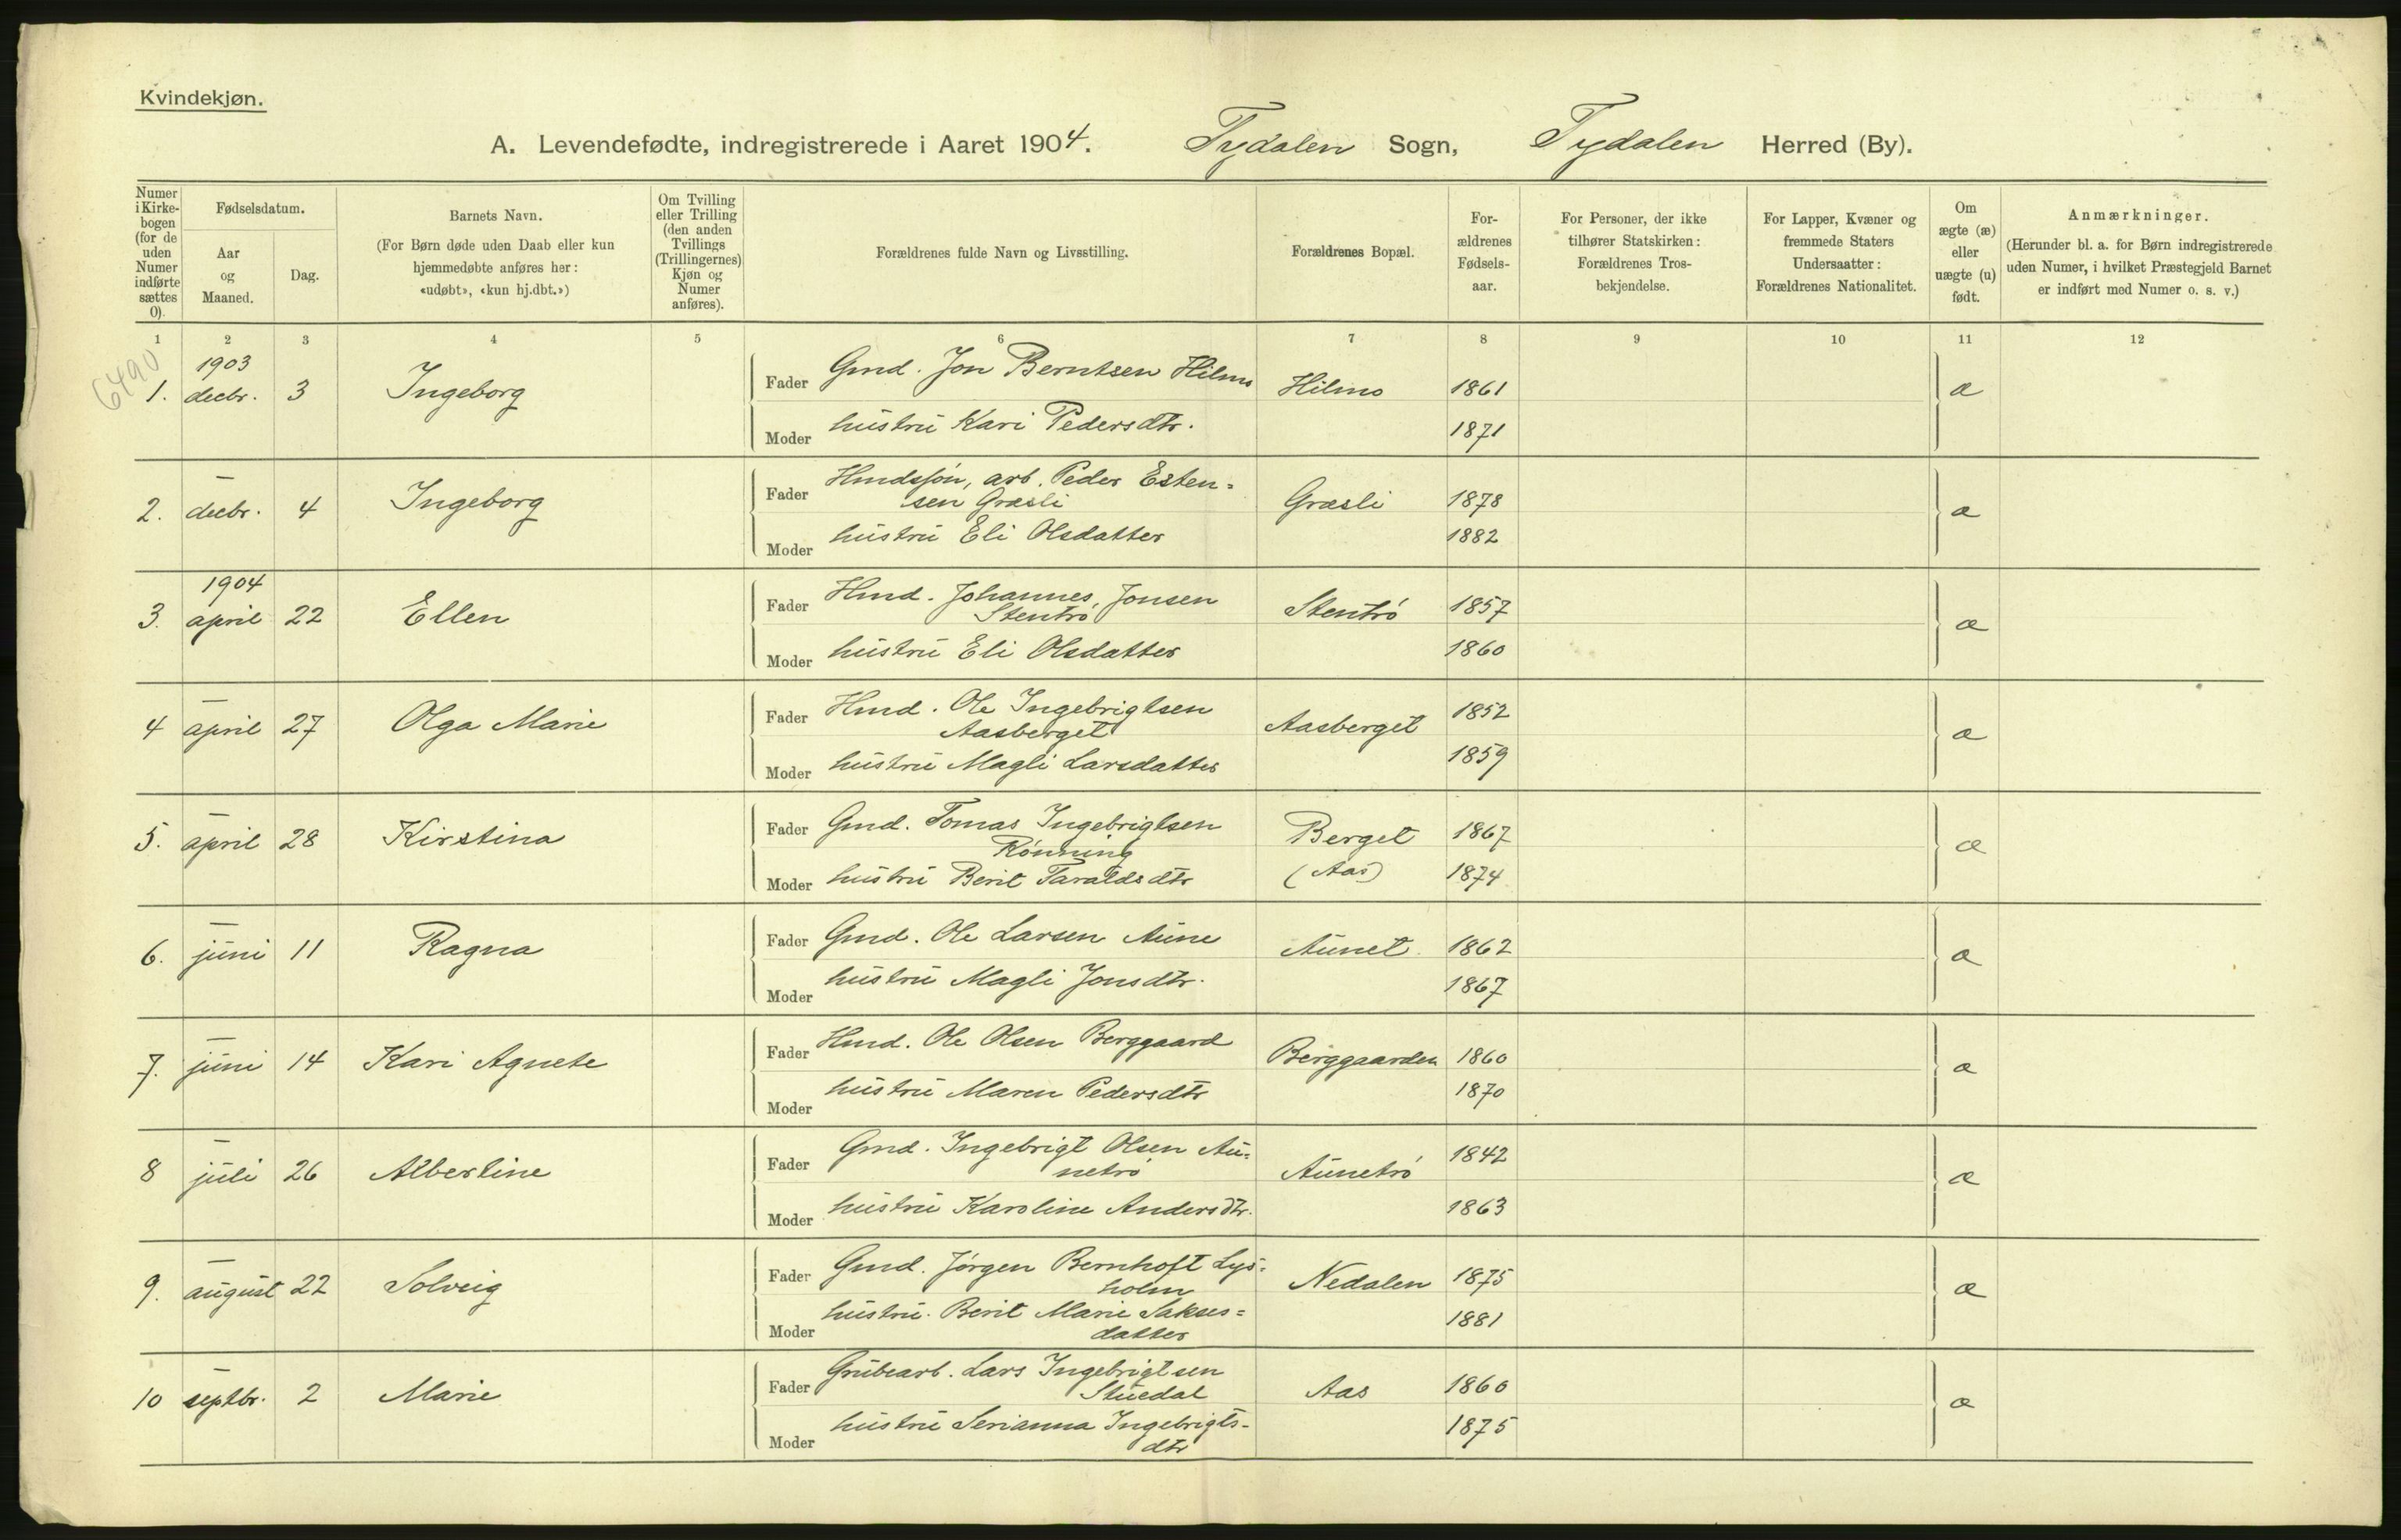 Kvindekjøn.
A. Levendefødte, indregistrerede i Aaret 1904. Tydalen Sogn, Tydalen Herred (By).
Numer i Kirkebogen (for de uden Numer indførte sættes 0).
Fødselsdatum.
Aar og Maaned.
Dag.
Barnets Navn.
(For Børn døde uden Daab eller kun hjemmedøbte anføres her: «udøbt», «kun hj.dbt.»)
Om Tvilling eller Trilling (den anden Tvillings (Trillingernes) Kjøn og Numer anføres).
Forældrenes fulde Navn og Livsstilling.
Forældrenes Bopæl.
Forældrenes Fødselsaar.
For Personer, der ikke tilhører Statskirken: Forældrenes Trosbekjendelse.
For Lapper, Kvæner og fremmede Staters Undersaatter: Forældrenes Nationalitet.
Om ægte (æ) eller uægte (u) født.
Anmærkninger.
(Herunder bl. a. for Børn indregistrerede uden Numer, i hvilket Præstegjeld Barnet er indført med Numer o. s. v.)
1 2 3 4 5 6 7 8 9 10 11 12
6490
1903
1. decbr. 3 Ingeborg Fader Gmd. Jon Berntsen Hilmo Hilmo 1861 æ
Moder hustru Kari Pedersdtr. 1871
2. — decbr. 4 Ingeborg Fader Hmdssøn, arb. Peder Esten=
sen Græsli Græsli 1878 æ
Moder hustru Eli Olsdatter 1882
1904
3. april 22 Ellen Fader Hmd. Johannes Jonsen
Stentrø Stentrø 1857 æ
Moder hustru Eli Olsdatter 1860
4 — april 27 Olga Marie Fader Hmd. Ole Ingebrigtsen
Aasberget Aasberget 1852 æ
Moder hustru Magli Larsdatter 1859
5. — april 28 Kirstina Fader Gmd. Tomas Ingebrigtsen
Rønning Berget 1867 æ
Moder hustru Berit Taraldsdtr (Aas) 1874
6. — juni 11 Ragna Fader Gmd. Ole Larsen Aune Aunet 1862 æ
Moder hustru Magli Jonsdtr. 1867
7. — juni 14 Kari Agnete Fader Hmd. Ole Olsen Berggaard Berggaarden 1860 æ
Moder hustru Maren Pedersdtr 1870
8 — juli 26 Albertine Fader Gmd. Ingebrigt Olsen Au=
netrø Aunetrø 1842 æ
Moder hustru Karoline Andersdtr. 1863
9. — august 22 Solveig Fader Gmd. Jørgen Bernhoft Lys=
holm Nedalen 1875 æ
Moder hustru. Berit Marie Sakses=
datter 1881
10 — septbr. 2 Marie Fader Grubearb. Lars Ingebrigtsen
Stuedal Aas 1860 æ
Moder hustru Serianna Ingebrigts-
dtr 1875